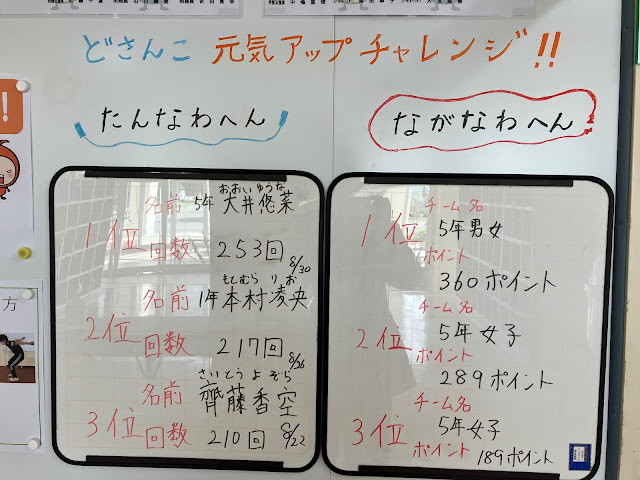 どさんこ 元気アップチャレンジ!!
たんなわへん
ながなわへん
おおいゆうな
1位 名前 5年 大井悠菜
回数 253回 8/30
もとむら りお
2位 名前 1年 本村凌央
回数 217回 8/26
さいとう よぞら
3位 名前 齊藤香空
回数 210回 8/22
1位 チーム名 5年男女
ポイント 360ポイント
2位 チーム名 5年女子
ポイント 289ポイント
3位 チーム名 5年女子
ポイント 189ポイント
!
方